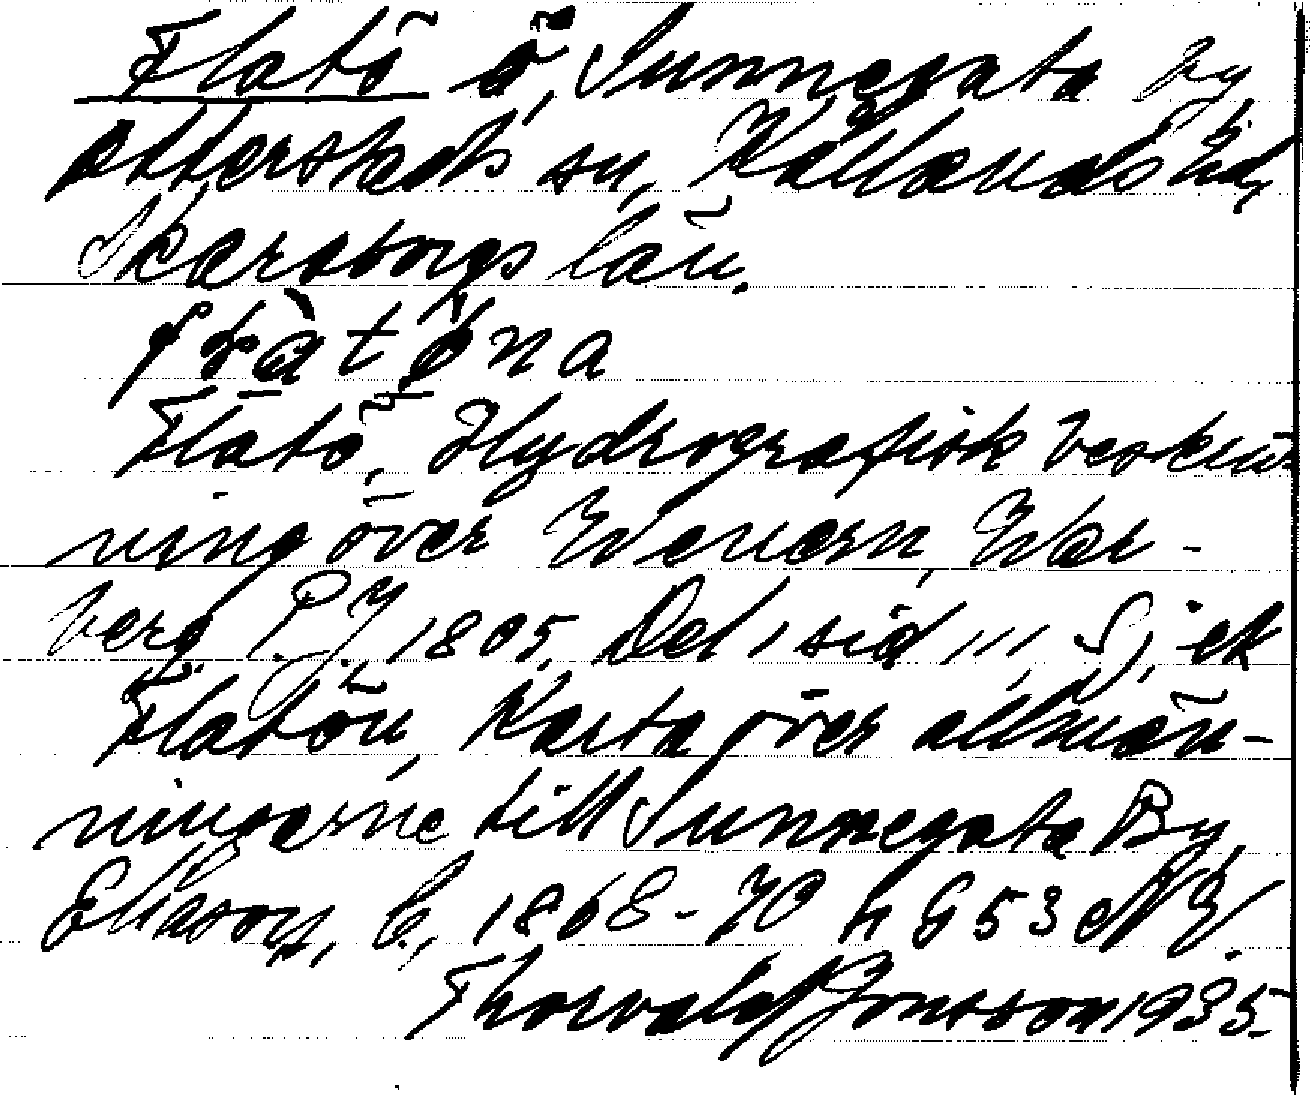 Flatö ö, Sunnegata by
Otterstads sn, Kållands hd,
Skaraborgs län.
Flatö, Hydrografisk beskriv-
ning över Wenern, War-
berg P. J. 1805, Del 1 sid 111, S, ek
Flatön, Karta över allmän-
ningarne till Sunnegata By,
Eliason, C, 1868-70 h G 53
Thorvald Jonsson 1935.